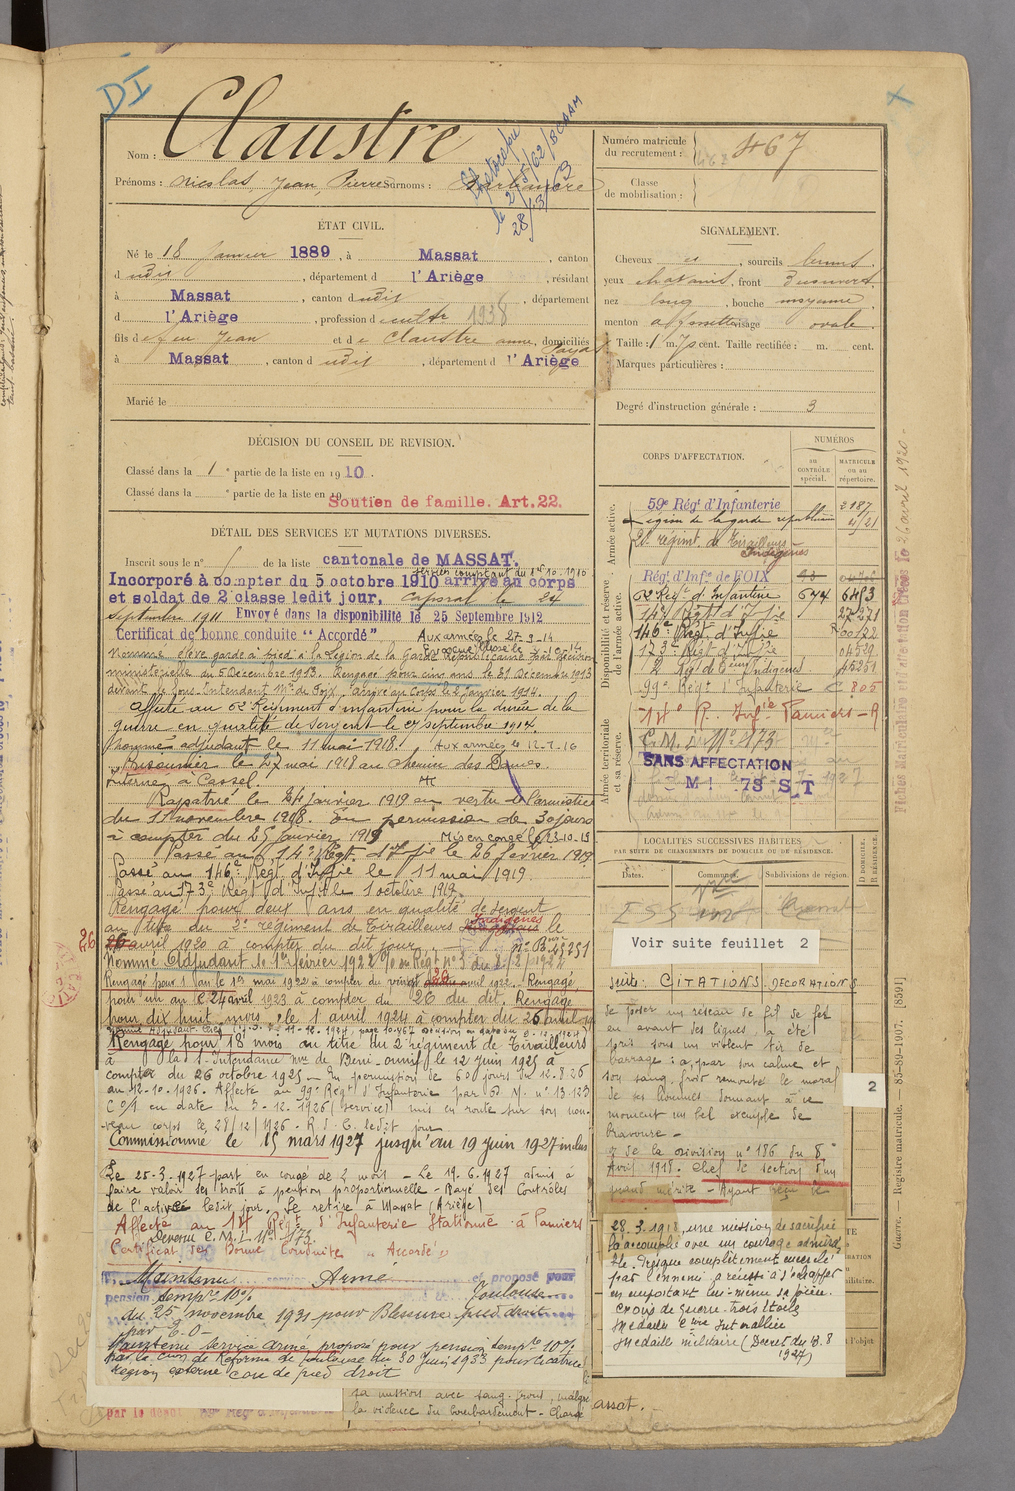 DI
Claustre
Nom :
Prénoms : Nicolas Jean, Pierre Surnoms :
Photocopié
le 2/5/62/BCAAM
28/3/63
Numéro matricule
du recrutement : 467
Classe
de mobilisation :
ÉTAT CIVIL.
Né le 18 Janvier 1889, à Massat, canton
dudit, département d l'Ariège, résidant
à Massat, canton dudit, département
d l'Ariège, profession de cultr 1938
fils de feu Jean et de Claustre anne, domiciliés
à Massat, canton dudit, département d l'Ariège
Marié le
SIGNALEMENT.
Cheveux, sourcils bruns
yeux chatains, front découvert
nez long, bouche moyenne
menton à fossette visage ovale.
Taille : 1 m. 70 cent. Taille rectifiée : m. cent.
Marques particulières :
Degré d'instruction générale : 3
DÉCISION DU CONSEIL DE REVISION.
Classé dans la 1e partie de la liste en 1910.
Classé dans la e partie de la liste en 19
Soutien de famille. Art.22.
DÉTAIL DES SERVICES ET MUTATIONS DIVERSES.
Inscrit sous le n° de la liste cantonale de MASSAT.
service comptant du 1er 10-1910
Incorporé à compter du 5 octobre 1910 arrivé au corps
et soldat de 2e classe ledit jour, caporal le 24
Septembre 1911 Envoyé dans la disponibilité le 25 Septembre 1912
Certificat de bonne conduite "Accordé" Aux armées le 27-9-14
Nommé élève garde à pied à la Légion de la Garde Républicaine par décision
ministérielle du 5 Décembre 1913. Rengagé pour cinq ans le 27 Décembre 1913
devant le Sous-Intendant Mre de Foix. Arrivé au Corps le 2 Janvier 1914.
Affecté au 62 Régiment d'infanterie pour la durée de la
guerre en qualité de Sergent le 27 septembre 1914.
Nommé adjudant le 11 mai 1918. Aux armées le 12-2-16
Prisonnier le 27 mai 1918 au Chemin des Dames.
Interné à Cassel
Rapatrié le 24 janvier 1919 en vertu de l'armistice
du 11 novembre 1918. En permission de 30 jours
à compter du 25 janvier 1919 Mis en congé le 23-10-19
Passé au 14e Régt. d'Ifie le 26 février 1919
Passé au 146e Regt d'Iffie le 11 mai 1919
Passé au 173e Régt d'Inf le 1 octobre 1919
Rengagé pour deux ans en qualité de sergent
au titre du 2e régiment de Tirailleurs Indigènes le
26 avril 1920 à compter du dit jour
Nommé Adjudant le 1er février 1922
Rengagé pour 1 an le 1er mai 1922 à compter du 26 avril 1922. Rengagé
pour un an le 24 avril 1923 à compter du 26 du dit. Rengagé
pour dix huit mois, le 1 avril 1924 à compter du 26 avril 19
Rengagé pour 18 mois au titre du 2e régiment de Tirailleurs
à la S. Intendance Mre de Beni-ounif le 12 juin 1925 à
compter du 26 octobre 1925. En permission de 60 jours du 12.8.26
au 12-10-1926. Affecté au 99e Régt d'Infanterie par D. M. n° 13.123
C°/1 en date du 3-12-1926 (service) mis en route sur son nou-
veau corps le 28/12/1926. R.d.C. ledit jour
Commissionné le 15 mars 1927 jusqu'au 19 juin 1927 inclus
Le 25-3-1927 part en congé de 2 mois - Le 19.6.1927 admis à
faire valoir ses droits à pension proportionnelle - Rayé des Contrôles
de l'active ledit jour. Se retire à Massat (Ariège)
Affecté au 14e Régt d'Infanterie Stationné à Pamiers
Devenu C.M.I. N° 173.
Certificat de Bonne Conduite "Accordé"
Maintenu service Armé et proposé pour
pension tempre 10% Toulouse
du 25 novembre 1931 pour Blessure pied droit
Maintenu service armé proposé pour pension tempre 10%
par la Cion de Réforme de Toulouse du 30 juin 1933 pour cicatrice
région externe cou de pied droit
sa mission avec sang-froid, malgré
la violence du bombardement -
assat.
CORPS D'AFFECTATION.
NUMÉROS
AU CONTRÔLE spécial.
MATRICULE ou au répertoire.
Armée active.
59e Régt d'Infanterie 2187
Légion de la garde républicaine 4/21
2e régimt. de Tirailleurs Indigènes
Disponibilité et réserve de l'armée active.
Régt d'Infie de FOIX
62 Régt d'Infanterie 644 6493
14e Régt d'Ifie 27271
146e Régt. d'Infie
173e Régt d'Infie 04529
2 Rgt de Teurs Indigènes 45251
99e Régt d'Infanterie C 805
Armée territoriale et sa réserve.
14e R. Infie Pamiers - R
C.M.I. N° 173
SANS AFFECTATION
M! 173 S T
LOCALITES SUCCESSIVES HABITEES
PAR SUITE DE CHANGEMENTS DE DOMICILE OU DE RÉSIDENCE.
Dates.
Communes
Subdivisions de région.
D DOMICILE.
R RÉSIDENCE
Voir suite feuillet 2
suite : CITATIONS DECORATIONS
de poser un réseau de fil de fer
en avant des lignes, a été
pris sous un violent tir de
barrage : a, par son calme et
son sang froid remonté le moral
de ses hommes donnant à ce
moment un bel exemple de
bravoure -
O de la Division n° 186 du 8
Avril 1918. Chef de section d'un
grand mérite - Ayant reçu le
2
28.3.1918, une mission de sacrifice
l'a accomplie avec un courage admira
ble. Presque complètement encerclé
par l'ennemi a réussi à s'échapper
en emportant lui-même sa pièce.
Croix de Guerre - trois étoiles
Médaille militaire (Décret du 13.8
1927)
Fiches Matriculaires et d'affectation Créées le 26 avril 1920 -
Guerre. — Registre matricule. — 85-89-1907. [8591]